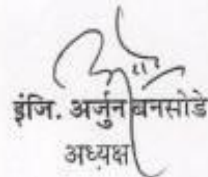 इंजि. अर्जुन बनसोडे
अध्यक्ष